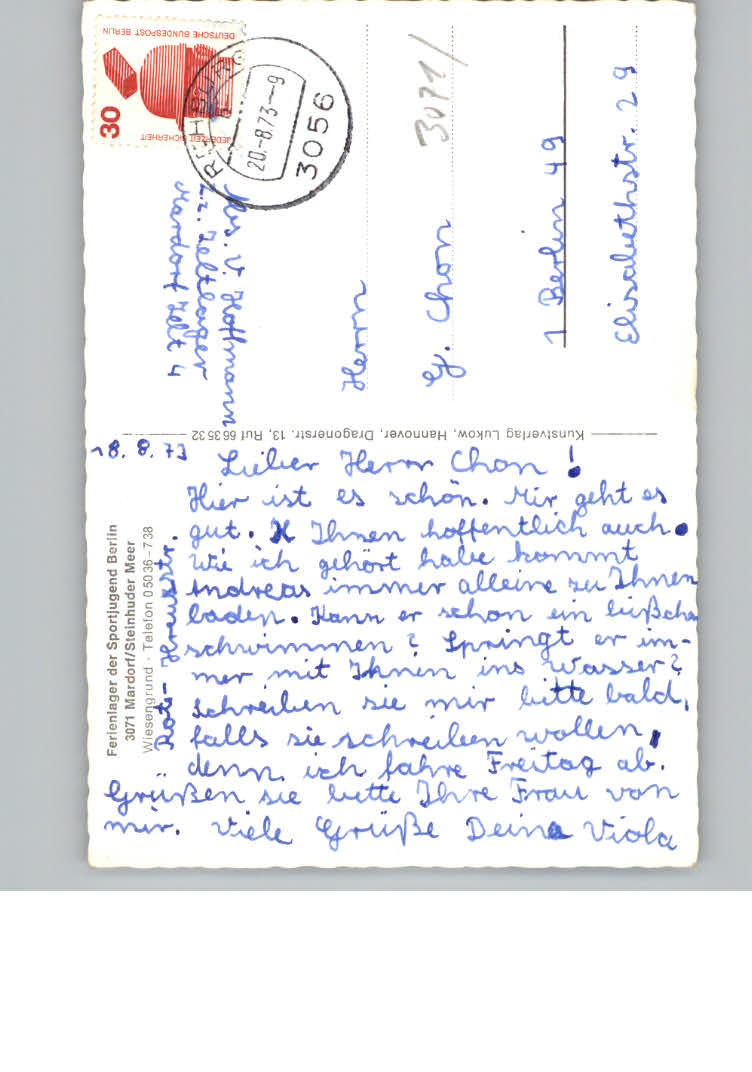 DEUTSCHE BUNDESPOST BERLIN
JEDERZEIT SICHERHEIT
30
20.-8.73-9
3056
3071/
Abs. V. Hoffmann
z.Z. Zeltlager
Mardorf Zelt 4
Herrn
G. Chon
1 Berlin 49
Elisabethstr. 29
Kunstverlag Lukow, Hannover, Dragonerstr. 13, Ruf 663532
Ferienlager der Sportjugend Berlin
3071 Mardorf/Steinhuder Meer
Wiesengrund · Telefon 05036-738
Rote-Kreuzstr.
18. 8. 73
Lieber Herrn Chon!
Hier ist es schön. Mir geht es
gut. Ihnen hoffentlich auch.
Wie ich gehört habe kommt
Andreas immer alleine zu Ihnen
baden. Kann er schon ein bißchen
schwimmen? Springt er im-
mer mit Ihnen ins Wasser?
Schreiben sie mir bitte bald,
falls sie schreiben wollen,
denn ich fahre Freitag ab.
Grüßen sie bitte Ihre Frau von
mir. Viele Grüße Deine Viola